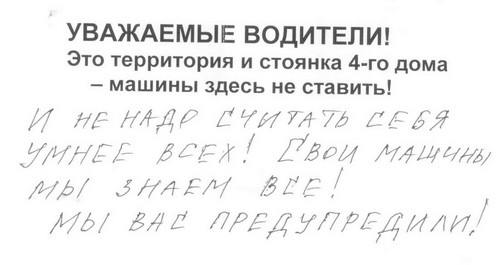 УВАЖАЕМЫЕ ВОДИТЕЛИ!
Это территория и стоянка 4-го дома
– машины здесь не ставить!
И НЕ НАДО СЧИТАТЬ СЕБЯ
УМНЕЕ ВСЕХ! СВОИ МАШИНЫ
МЫ ЗНАЕМ ВСЕ!
МЫ ВАС ПРЕДУПРЕДИЛИ!